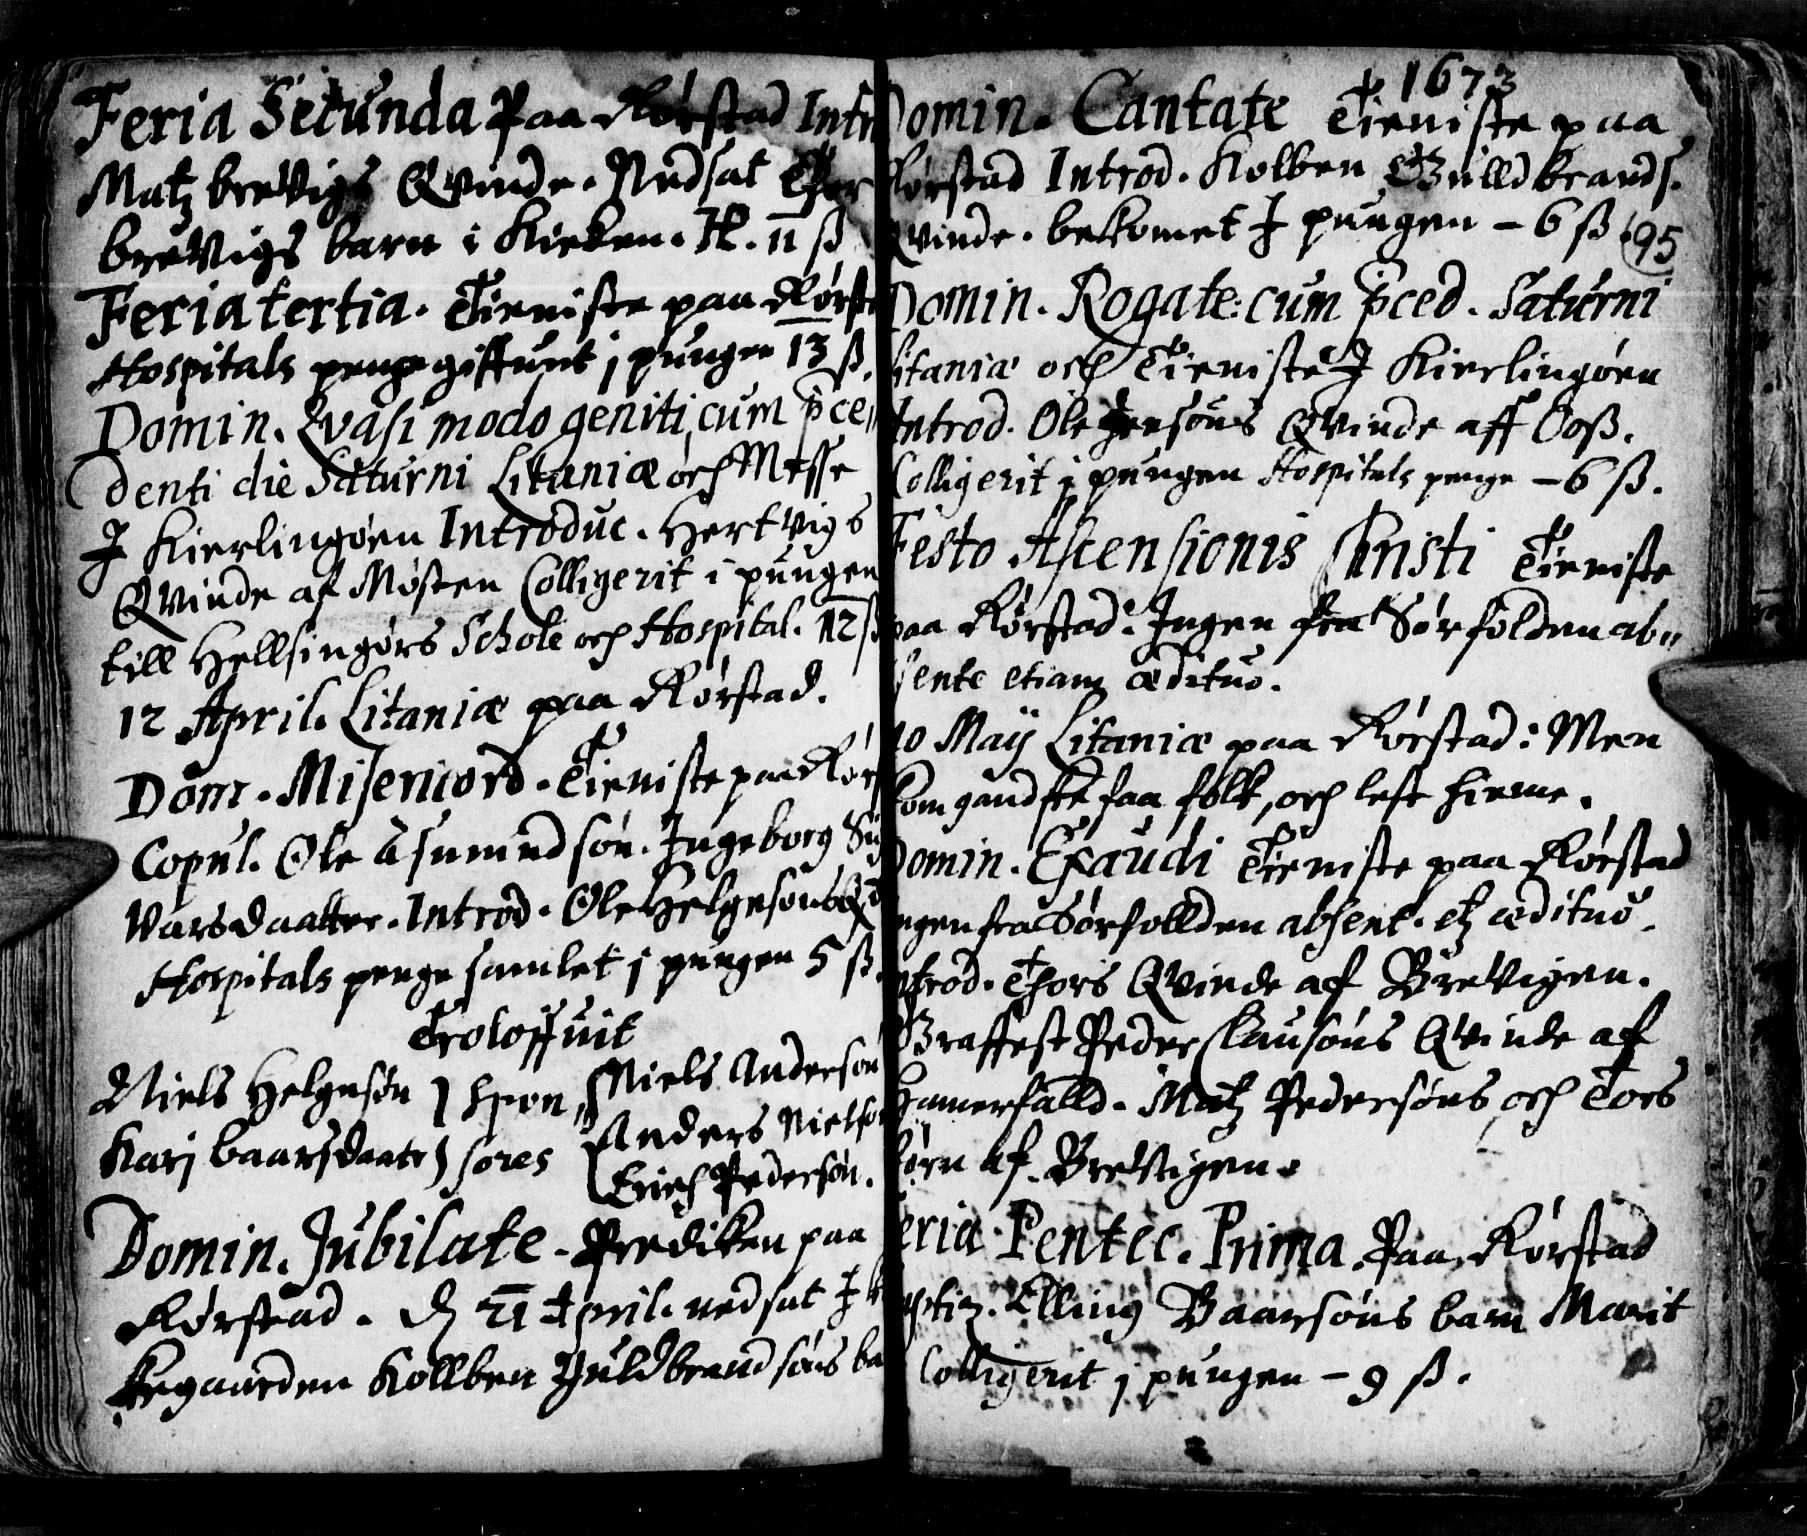 Feria Secunda Paa Rørstad Intr
Matz breVigs Qvinde. Nedsat Thor
breVigs barn i Kirken. H. 11 ß
Feria tertia. Tieniste paa Rørst
Hospitals penge giffuet j pungen 13 ß.
Domin. Qvasi modo geniti, cum pce„
denti die Saturni Litaniæ och Messe
J Kierlingøen Introduc. Hertvigs
Qvinde af Møsten Colligerit i pungen
till Hellsingørs Schole och Hospital. 12 ß
12 April. Litaniæ paa Rørstad.
Dom. Misericord. Tieniste paa Rørs
Copul. Ole Asmund søn. Jngeborg Sig
Varsdaatter. Introd. Ole Helgesøns Qv
Hospitals penge samlet j pungen 5 ß.
Troloffuit
Niels Helgesøn } Spon„ { Niels Andersøn
Karj baarsdaatr } sores { Anders Nielsøn
Erich Pedersøn.
Domin. Jubilate. Prediken paa
Rørstad. D 21 April. nedsat J k
kegaarden Kollben Guldbrandsøns ba
1673
Domin. Cantate Tieniste paa
Rørstad Introd. Kolben Gulldbrands.
Qvinde. bekomet J pungen – 6 ß
95
Domin. Rogate: cum pced. Saturni
Litaniæ och Tieniste J Kierlingøen
Introd. Ole Jensøns Qvinde aff Ooß.
Colligerit j pungen Hospitals penge – 6 ß.
Festo Ascensionis Christi Tieniste
paa Rørstad: Jngen fra Sørfolden ab„
sente etiam ædituo.
10 Maij Litaniæ paa Rørstad: Men
kom gandske faa folk, och lest hieme.
Domin. Exaudi Tieniste paa Rørstad
ngen fra Sørfollden absent. et ædituo.
ntrod. Thors Qvinde af BreVigen.
Graffest Peder Clausøns Qvinde af
Hamerfalld. Matz Pedersøns och Tors
børn af BreVigen.
eria Pentec. Prima Paa Rørstad
aptiz. Elling Baarsøns barn Marit
Colligerit j pungen – 9 ß.